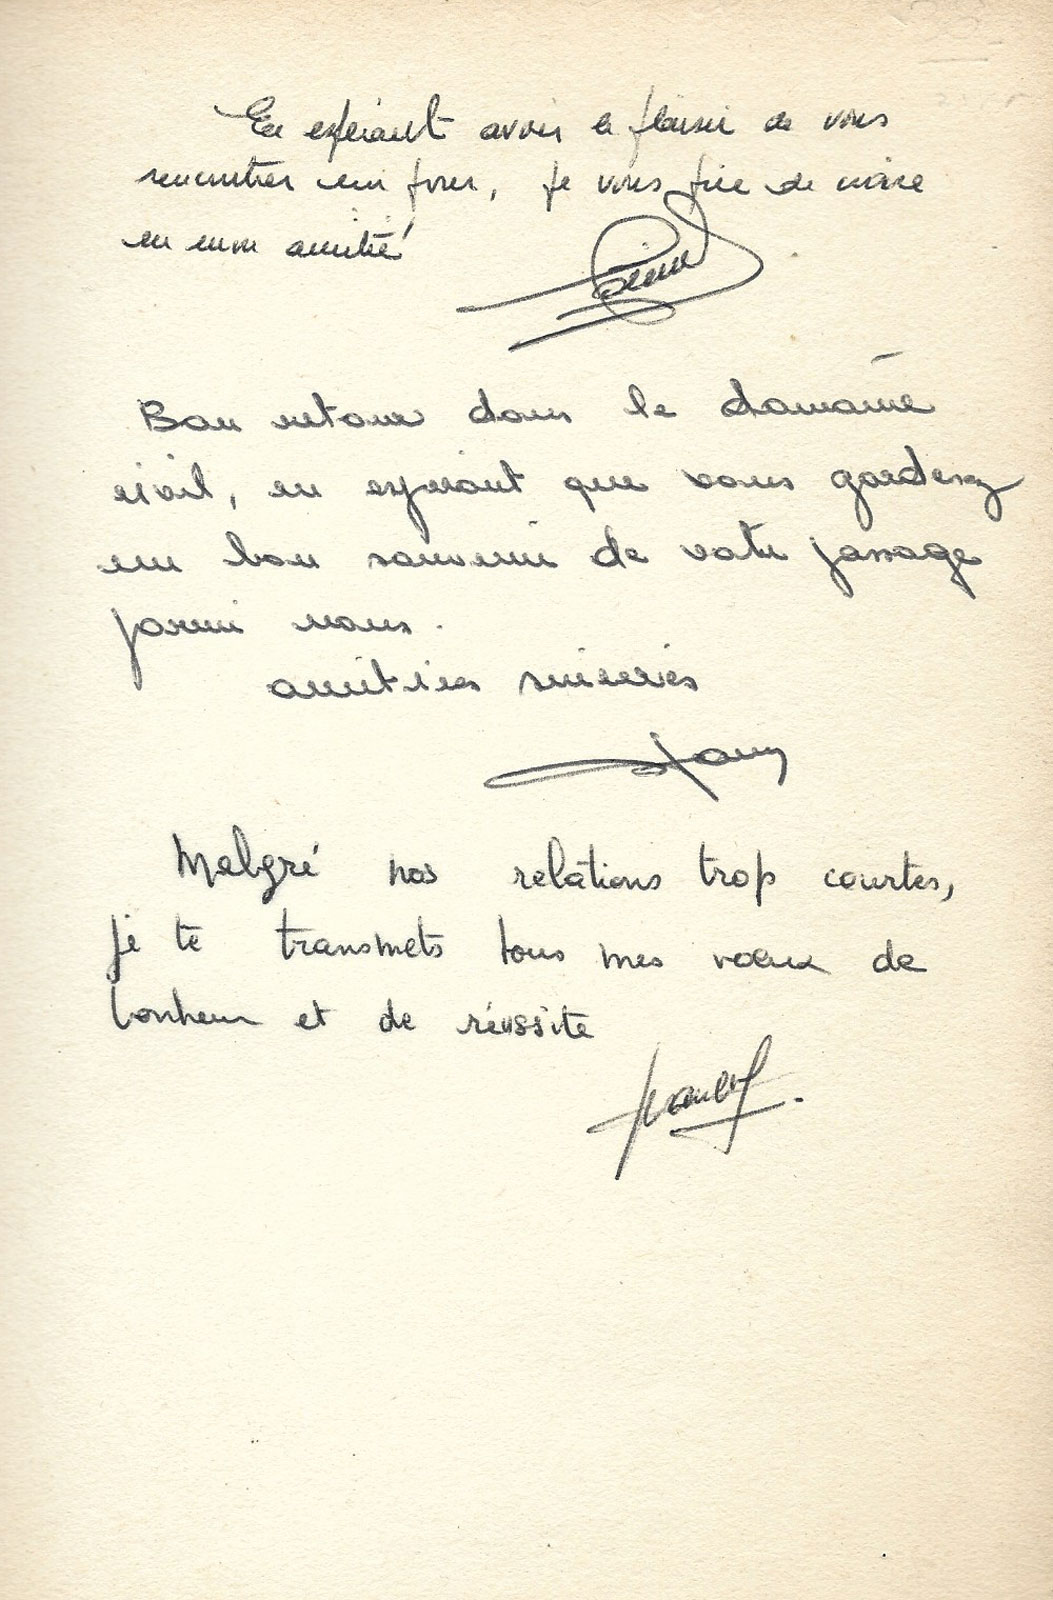 En espérant avoir le plaisir de vous
rencontrer un jour, je vous prie de croire
en mon amitié
Bon retour dans le domaine
civil, en espérant que vous garderez
un bon souvenir de votre passage
parmi nous.
amitiés sincères
Malgré nos relations trop courtes,
je te transmets tous mes vœux de
bonheur et de réussite